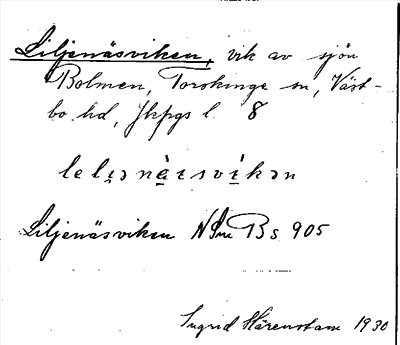 Liljenäsviken, vik av sjön
Bolmen, Torskinge sn, Väst-
bo hd, Jkpgs l 8
Liljenäsviken NSm Bs 905
Ingrid Härenstam 1930